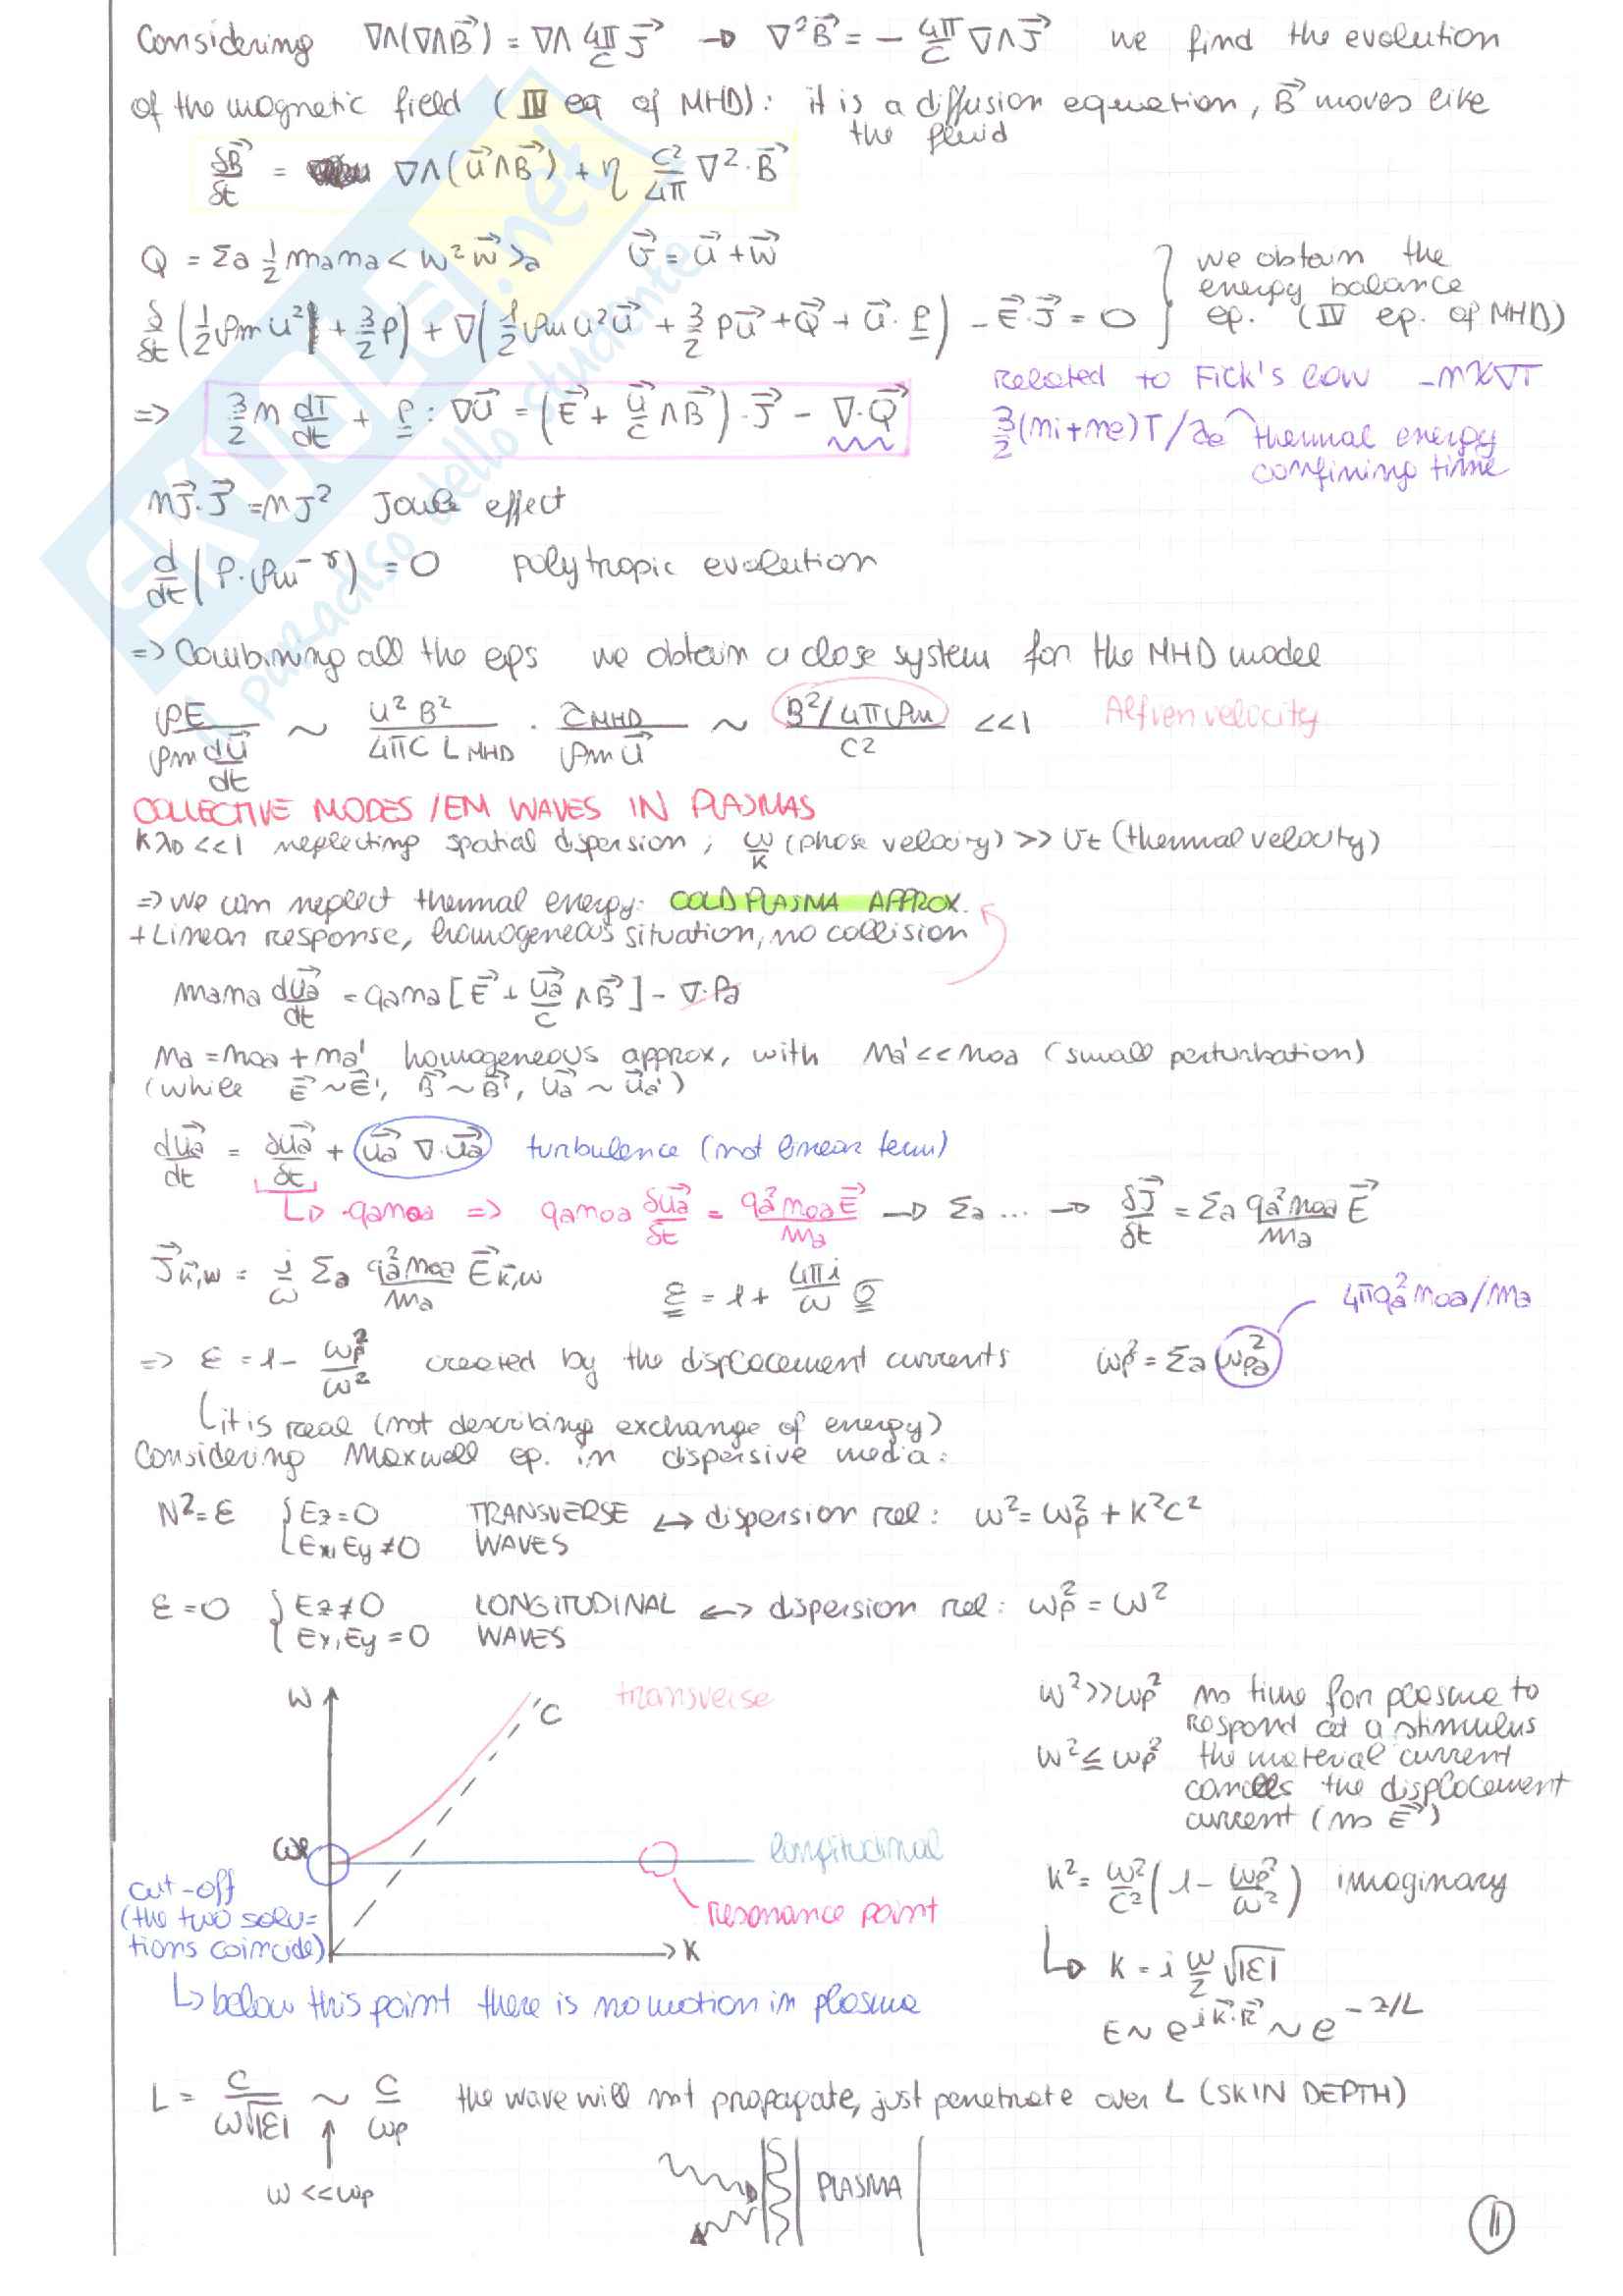 Considering ∇∧(∇∧B⃗) = ∇∧ 4π/c J⃗ → ∇²B⃗ = − 4π/c ∇∧J⃗ we find the evolution
of the magnetic field (III eq of MHD): it is a diffusion equation, B⃗ moves like
the fluid
δB⃗/δt = ∇∧(u⃗∧B⃗) + η c²/4π ∇²·B⃗
Q = Σa ½ mana <w² w⃗>a v⃗ = u⃗ + w⃗
δ/δt (½ρm u² + 3/2 p) + ∇(½ρm u²u⃗ + 3/2 pu⃗ + Q⃗ + u⃗·p) − E⃗·J⃗ = 0
we obtain the
energy balance
eq. (IV eq. of MHD)
=> 3/2 n dT/dt + p : ∇u⃗ = (E⃗ + u⃗/c ∧B⃗)·J⃗ − ∇·Q⃗
Related to Fick's law −nχ∇T
3/2(ni+ne)T/τe thermal energy
confining time
ηJ⃗·J⃗ = ηJ² Joule effect
d/dt (P·ρm^−γ) = 0 polytropic evolution
=> Combining all the eqs we obtain a close system for the MHD model
ρE / ρm du⃗/dt ~ u²B² / 4πc LMHD · τMHD / ρm u⃗ ~ B²/4πρm / c² <<1 Alfven velocity
COLLECTIVE MODES /EM WAVES IN PLASMAS
kλD <<1 neglecting spatial dispersion ; ω/k (phase velocity) >> vt (thermal velocity)
=> we can neglect thermal energy: COLD PLASMA APPROX.
+ Linear response, homogeneous situation, no collision
mana du⃗a/dt = qana [E⃗ + u⃗a/c ∧B⃗] − ∇·Pa
na = noa + na' homogeneous approx, with na' << noa (small perturbation)
(while E⃗ ~ E⃗', B⃗ ~ B⃗', u⃗a ~ u⃗a')
du⃗a/dt = δu⃗a/δt + u⃗a ∇·u⃗a turbulence (not linear term)
↳ ·qanoa => qanoa δu⃗a/δt = qa²noaE⃗/ma → Σa ... → δJ⃗/δt = Σa qa²noa/ma E⃗
J⃗k⃗,ω = i/ω Σa qa²noa/ma E⃗k⃗,ω ε = 1 + 4πi/ω σ
4πqa²noa/ma
=> ε = 1 − ωp²/ω² created by the displacement currents ωp² = Σa ωpa²
it is real (not describing exchange of energy)
Considering Maxwell eq. in dispersive media:
N² = ε { Ez = 0 TRANSVERSE ↔ dispersion rel: ω² = ωp² + k²c²
Ex, Ey ≠ 0 WAVES
ε = 0 { Ez ≠ 0 LONGITUDINAL ↔ dispersion rel: ωp² = ω²
Ex, Ey = 0 WAVES
ω transverse
c
ωp longitudinal
resonance point
k
cut-off
(the two solu=
tions coincide)
↳ below this point there is no motion in plasma
ω² >> ωp² no time for plasma to
respond at a stimulus
ω² ≤ ωp² the material current
cancels the displacement
current (no E⃗)
k² = ω²/c² (1 − ωp²/ω²) imaginary
↳ k = i ω/z √|ε|
E ~ e^ik⃗·R⃗ ~ e^−z/L
L = c / ω√|ε| ~ c/ωp the wave will not propagate, just penetrate over L (SKIN DEPTH)
ω << ωp
PLASMA
11
SKUOLA.net
il paradiso dello studente